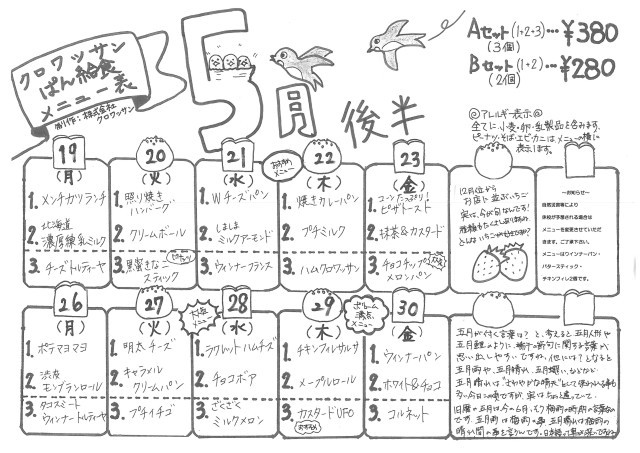 クロワッサン
ぱん給食
メニュー表
制作：株式会社
クロワッサン
5月
後半
Aセット(1+2+3)…¥380
(3個)
Bセット(1+2)…¥280
(2個)
◎アレルギー表示◎
全てに小麦・卵・乳製品を含みます。
ピーナッツ・そば・エビ・カニはメニューの横に
表示します。
19
(月)
1. メンチカツランチ
2. 北海道
濃厚練乳ミルク
3. チーズトルティーヤ
20
(火)
1. 照り焼き
ハンバーグ
2. クリームボール
3. 黒蜜きなこ
スティック
21
(水)
1. Wチーズパン
2. しましま
ミルクアーモンド
3. ウィンナーフランス
メニュー
22
(木)
1. 焼きカレーパン
2. プチミルク
3. ハムクロワッサン
23
(金)
1. コーンたっぷり！
ピザトースト
2. 抹茶&カスタード
3. チョコチップ
メロンパン
12月位から
お店に並ぶいちご
実は、今が旬なんです！
―お知らせ―
自然災害等により
休校が予想される場合は
メニューを変更させていただ
きます。ご了承下さい。
メニューはウインナーパン・
バタースティック・
チキンフィレ2個です。
26
(月)
1. ポテマヨマヨ
2. 渋皮
モンブランロール
3. タコスミート
ウィンナートルティーヤ
27
(火)
1. 明太チーズ
2. キャラメル
クリームパン
3. プチイチゴ
大人気
メニュー
28
(水)
1. ラクレットハムチーズ
2. チョコボア
3. ざくざく
ミルクメロン
29
(木)
1. チキンフィレサルサ
2. メープルロール
3. カスタードUFO
おすすめ
ボリューム
満点
メニュー
30
(金)
1. ウィンナーパン
2. ホワイト&チョコ
3. コルネット
五月が付く言葉は？と、考えると五月人形や